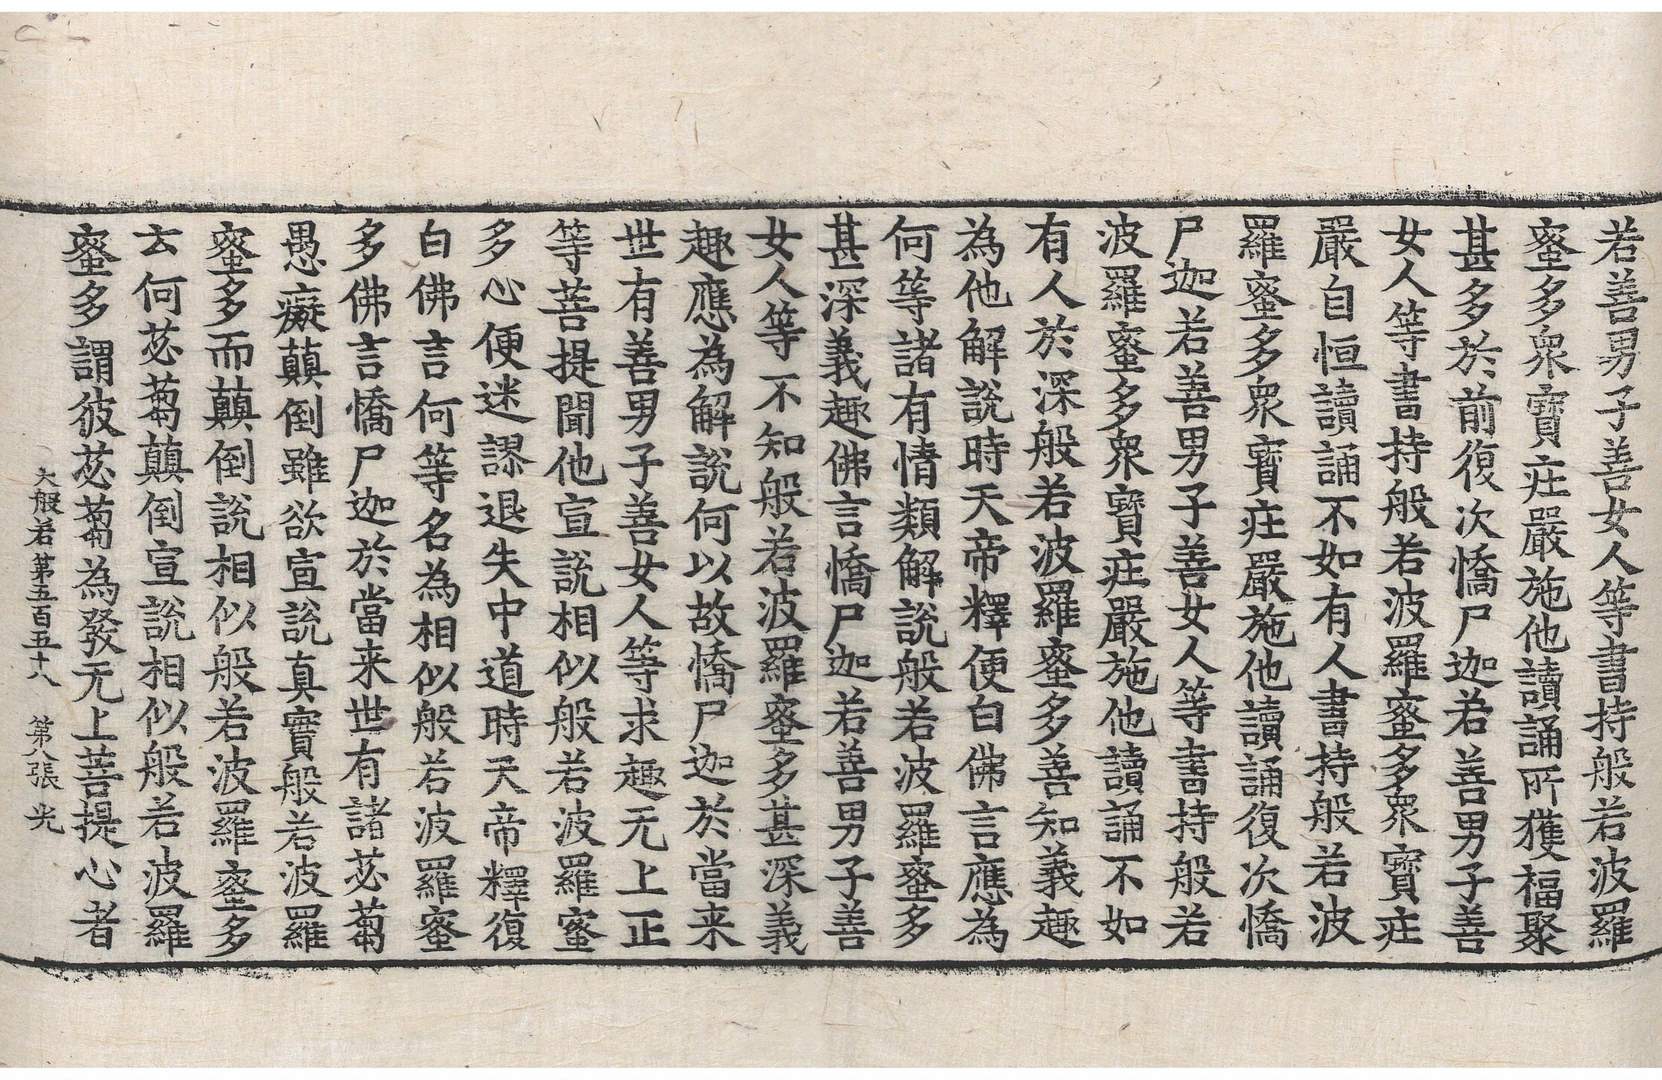 若善男子善女人等書持般若波羅
蜜多衆寶庄嚴施他讀誦所獲福聚
甚多於前復次憍尸迦若善男子善
女人等書持般若波羅蜜多衆寶庄
嚴自恒讀誦不如有人書持般若波
羅蜜多衆寶庄嚴施他讀誦復次憍
尸迦若善男子善女人等書持般若
波羅蜜多衆寶庄嚴施他讀誦不如
有人於深般若波羅蜜多善知義趣
為他解說時天帝釋便白佛言應為
何等諸有情類解說般若波羅蜜多
甚深義趣佛言憍尸迦若善男子善
女人等不知般若波羅蜜多甚深義
趣應為解說何以故憍尸迦於當来
世有善男子善女人等求趣无上正
等菩提聞他宣說相似般若波羅蜜
多心便迷謬退失中道時天帝釋復
白佛言何等名為相似般若波羅蜜
多佛言憍尸迦於當来世有諸苾蒭
愚癡顛倒雖欲宣說真實般若波羅
蜜多而顛倒說相似般若波羅蜜多
云何苾蒭顛倒宣說相似般若波羅
蜜多謂彼苾蒭為發无上菩提心者
大般若第五百五十八 第八張 光